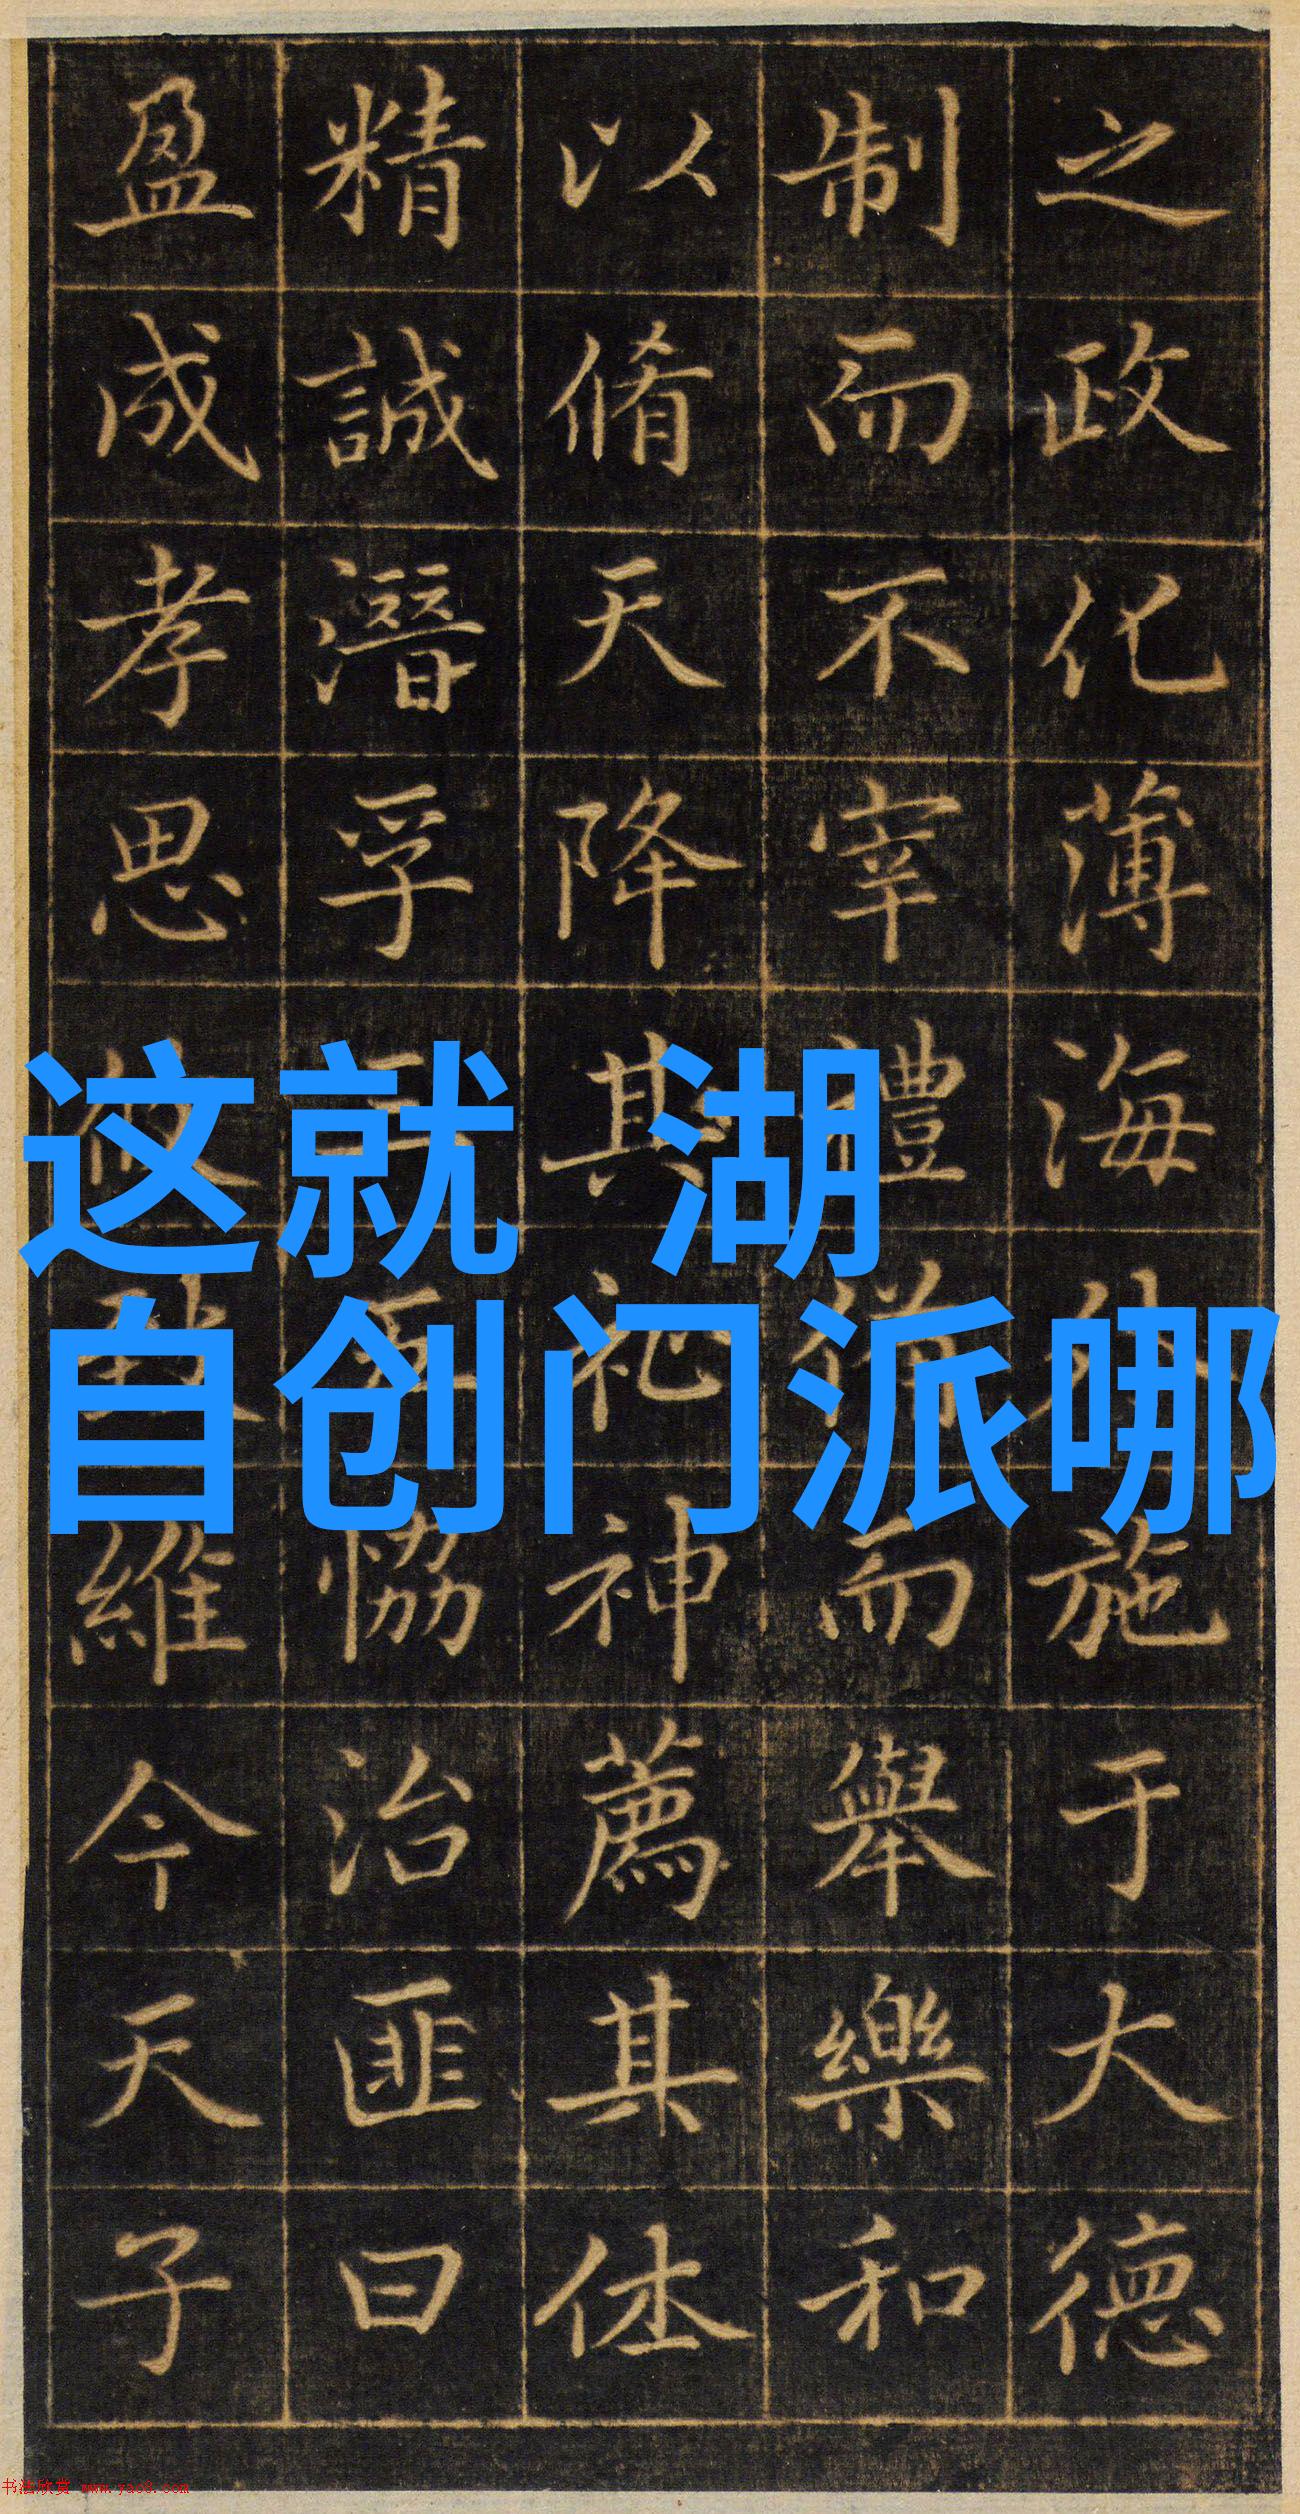 之政化薄海外施于大德
制而不宰禮而舉樂和
以脩天降其祀神薦其休
精誠潛孚協治匪曰
盈成孝思維今天子
这就 湖
自创门派哪
书法欣赏 www.yac8.com